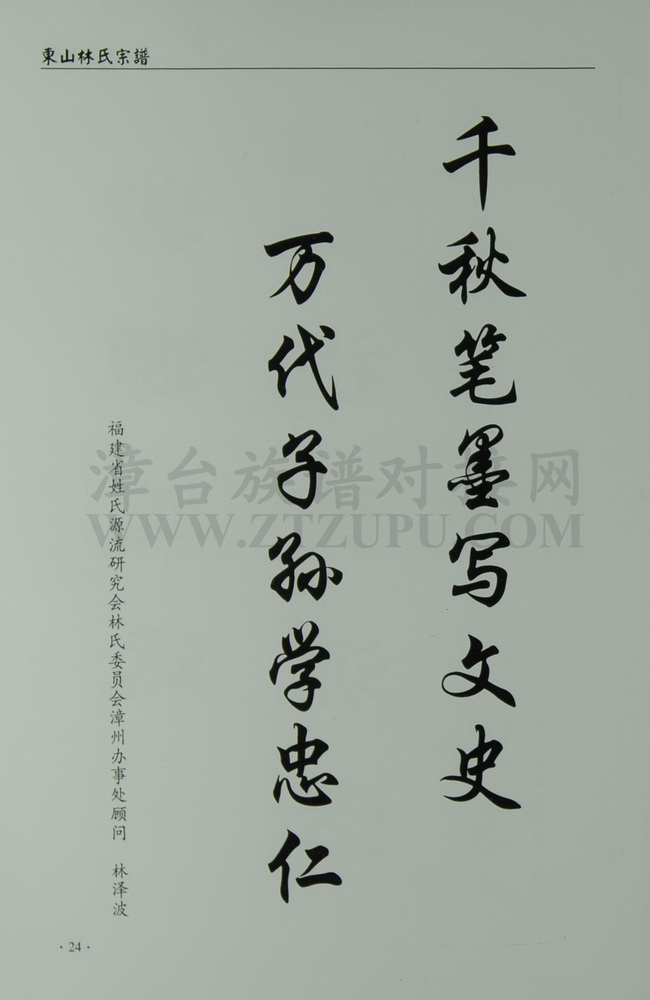 東山林氏宗譜
千秋笔墨写文史
万代子孙学忠仁
福建省姓氏源流研究会林氏委员会漳州办事处顾问 林泽波
漳台族谱对接网
WWW.ZTZUPU.COM
·24·